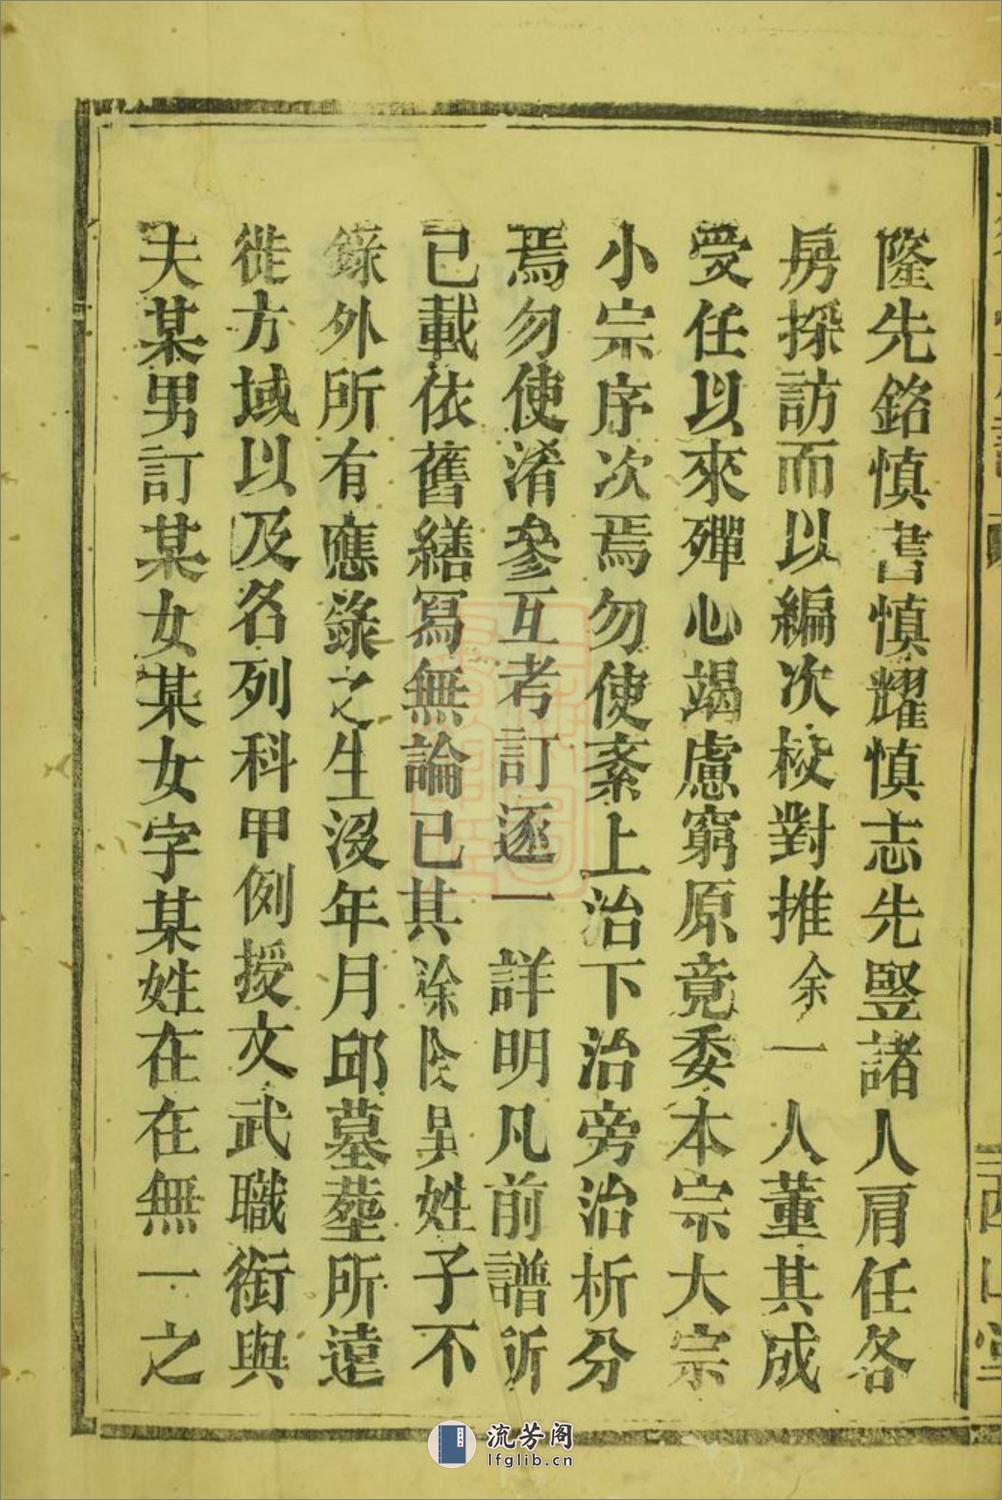 隆先銘慎書慎耀慎志先竪諸人肩任各
房採訪而以編次校對推余一人董其成
受任以來殫心竭慮窮原竟委本宗大宗
小宗序次焉勿使紊上治下治旁治析分
焉勿使淆參互考訂逐一詳明凡前譜所
已載依舊繕寫無論已其除異姓子不
錄外所有應錄之生沒年月邱墓塋所遠
徙方域以及名列科甲例授文武職銜與
夫某男訂某女某女字某姓在在無一之
西山堂
流芳阁
lfglib.cn